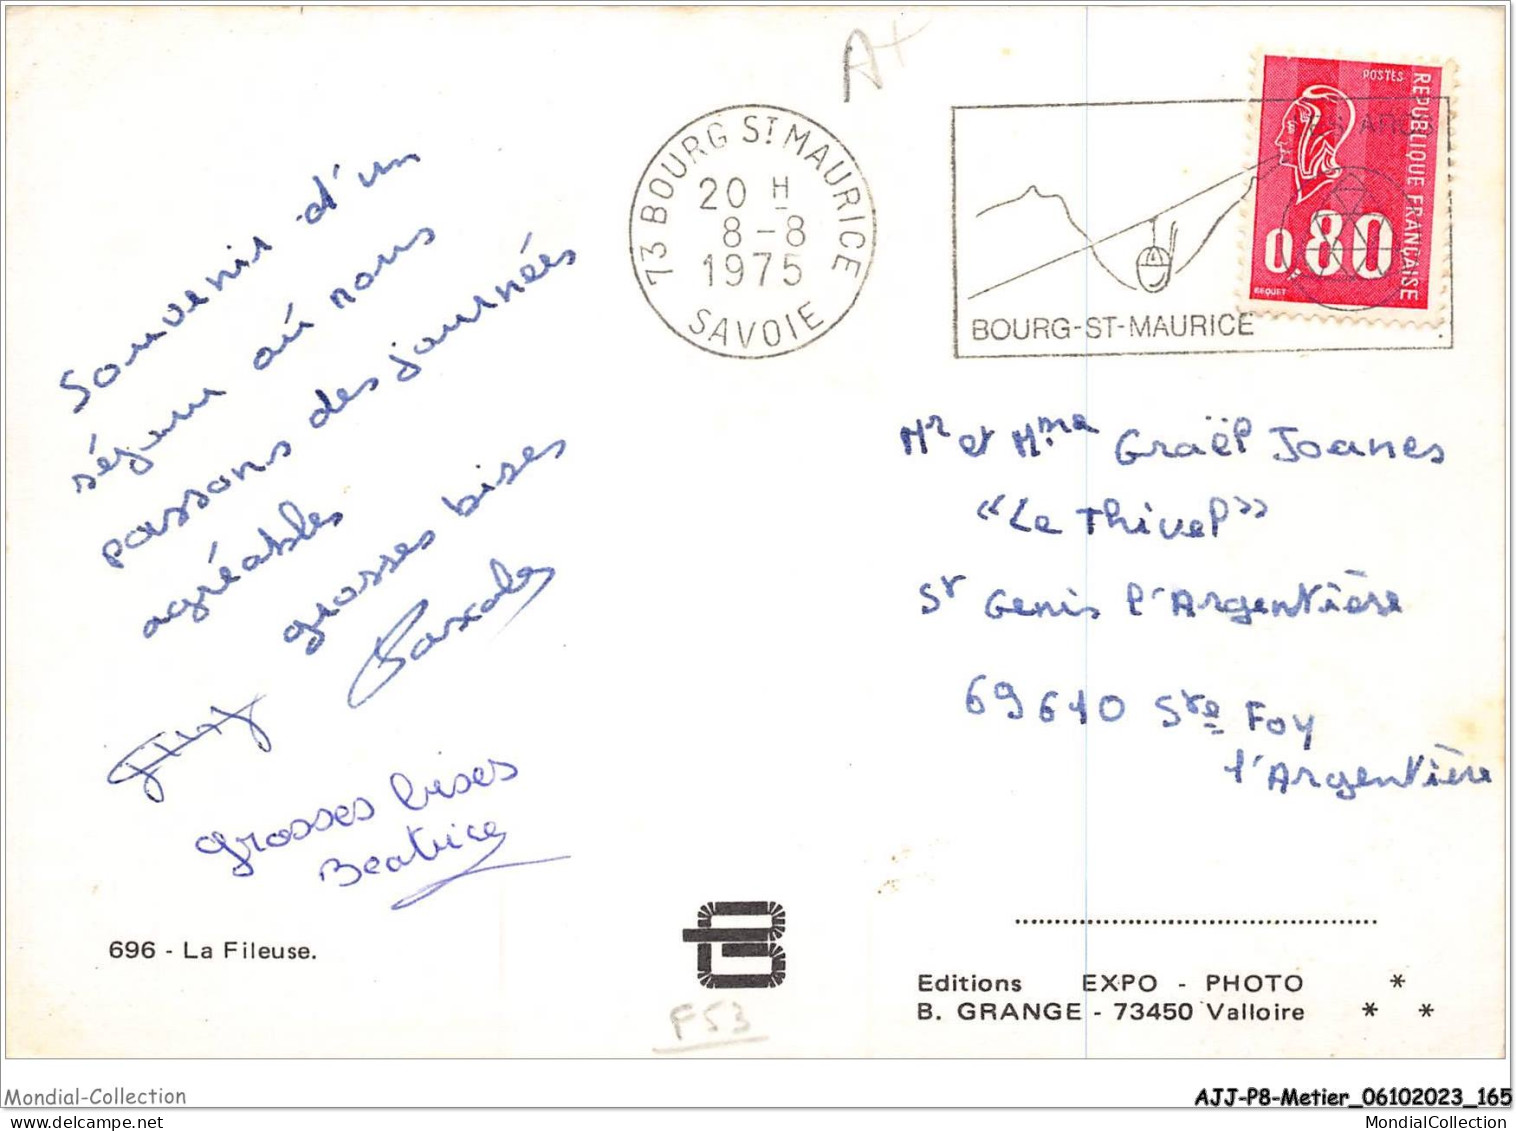 A+
73 BOURG ST MAURICE
20 H
8-8
1975
SAVOIE
LES ARCS
BOURG-ST-MAURICE
POSTES
REPUBLIQUE FRANÇAISE
0,80
BEQUET
Souvenir d'un
séjour où nous
passons des journées
agréables
grosses bises
grosses bises
Beatrice
Mr et Mme Graël Joanes
"Le Thivel"
St Genis l'Argentière
69610 Ste Foy
l'Argentière
696 - La Fileuse.
F53
Editions EXPO - PHOTO *
B. GRANGE - 73450 Valloire * *
Mondial-Collection
AJJ-P8-Metier_06102023_165
MondialCollection